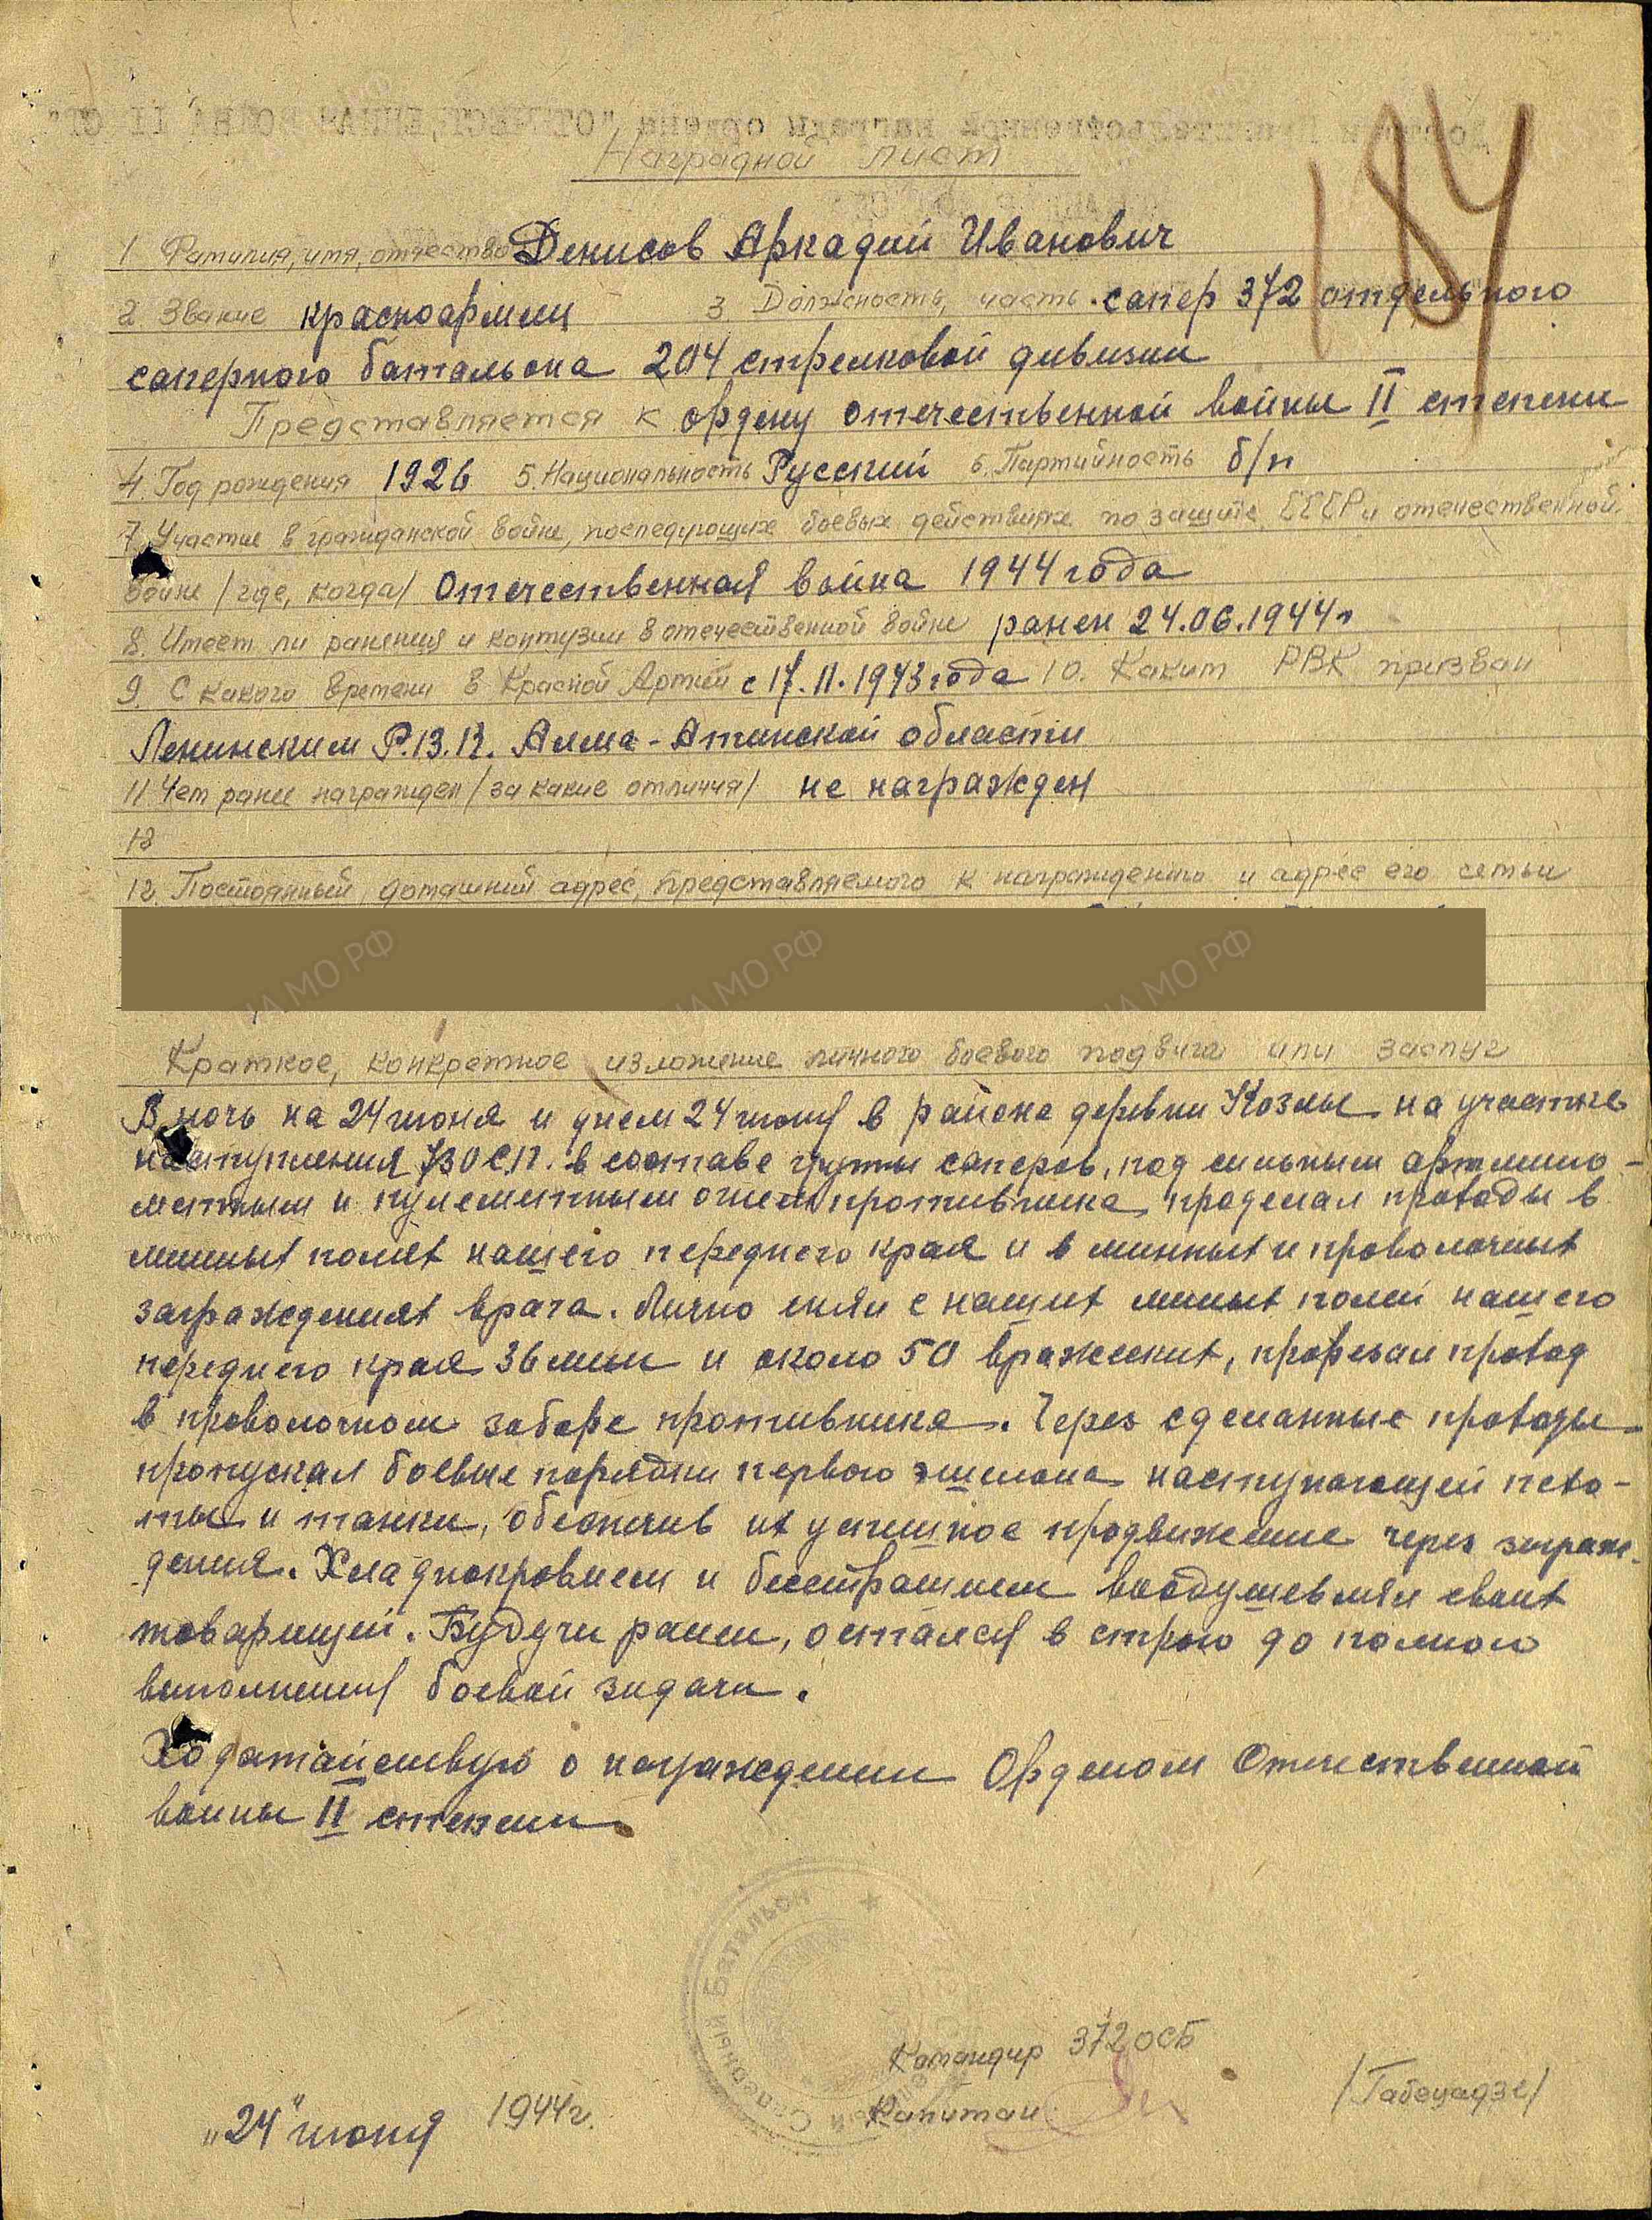 Наградной лист
184
1 Фамилия, имя, отчество Денисов Аркадий Иванович
2 Звание красноармеец 3. Должность, часть. сапер 372 отдельного
саперного батальона 204 стрелковой дивизии
Представляется к ордену отечественной войны II степени
4. Год рождения 1926 5. Национальность Русский 6. Партийность б/п
7. Участие в гражданской войне, последующих боевых действиях по защите СССР и отечественной
войне /где, когда/ Отечественная война 1944 года
8. Имеет ли ранения и контузии в отечественной войне ранен 24.06.1944г
9. С какого времени в Красной Армии с 17.11.1943 года 10. Каким РВК призван
Ленинским Р.В.К. Алма-Атинской области
11 Чем ранее награжден /за какие отличия/ не награжден
12
12. Постоянный домашний адрес, представляемого к награждению и адрес его семьи
Краткое, конкретное изложение личного боевого подвига или заслуг
В ночь на 24 июня и днем 24 июня в районе деревни Козлы на участке
наступления 730 С.П. в составе группы саперов, под сильным арт. мино-
метным и пулеметным огнем противника, проделал проходы в
минных полях нашего переднего края и в минных и проволочных
заграждениях врага. Лично снял с наших минных полей нашего
переднего края 36 мин и около 50 вражеских, прорезал проход
в проволочном заборе противника. Через сделанные проходы
пропускал боевые порядки первого эшелона наступающей пехо-
ты и танки, обеспечив их успешное продвижение через заграж-
дения. Хладнокровием и бесстрашием воодушевлял своих
товарищей. Будучи ранен, остался в строю до полного
выполнения боевой задачи.
Ходатайствую о награждении Орденом Отечественной
войны II степени.
Саперный Батальон
Командир 372 ОСБ
Капитан /Габецадзе/
„24" июня 1944г.